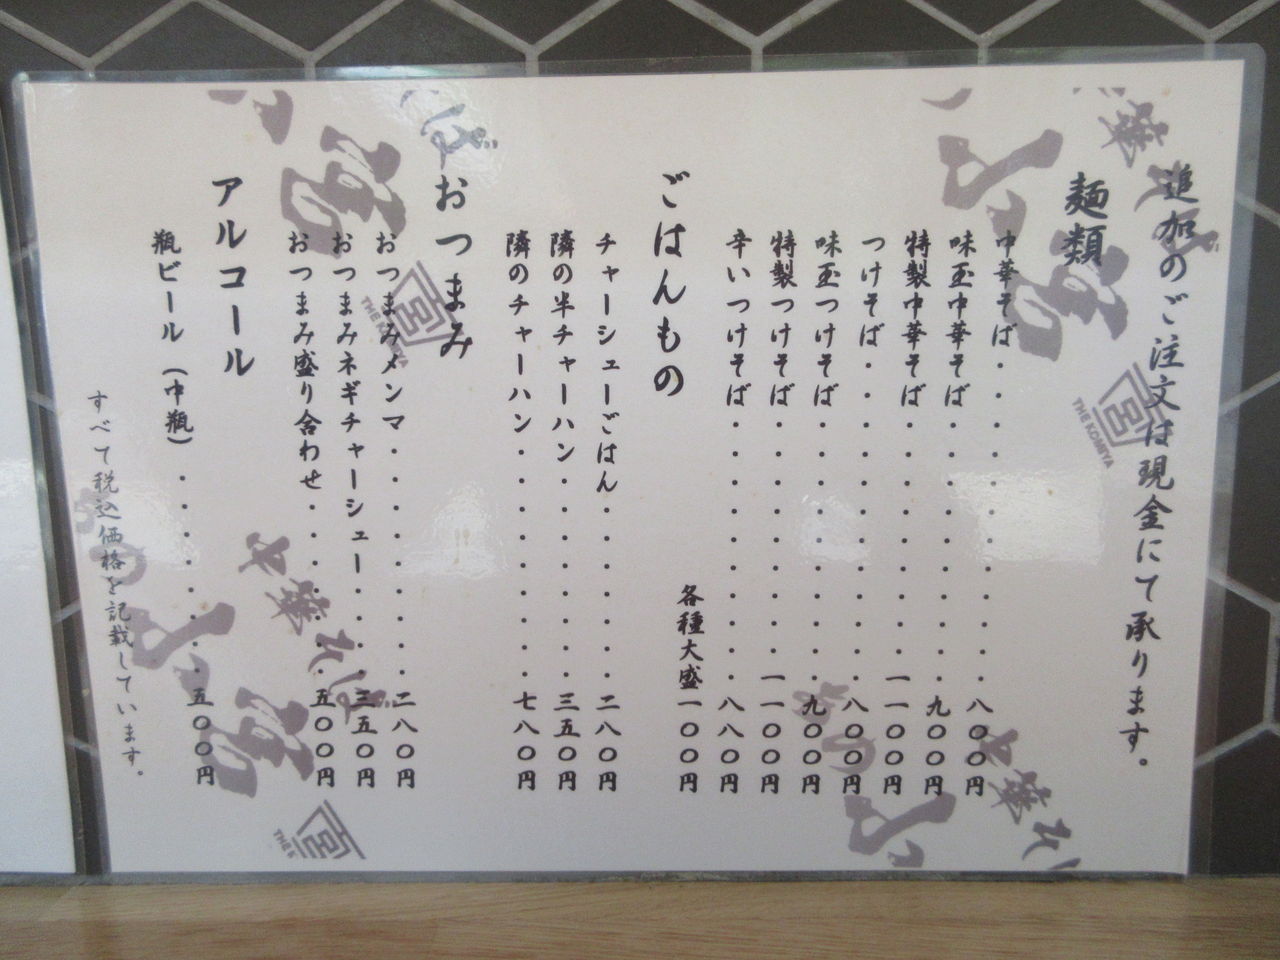 追加のご注文は現金にて承ります。
麺類
中華そば・・・・・・・・・・・八〇〇円
味玉中華そば・・・・・・・・・・九〇〇円
特製中華そば・・・・・・・・・一一〇〇円
つけそば・・・・・・・・・・・・八〇〇円
味玉つけそば・・・・・・・・・・九〇〇円
特製つけそば・・・・・・・・・一一〇〇円
辛いつけそば・・・・・・・・・・八八〇円
各種大盛一〇〇円
ごはんもの
チャーシューごはん・・・・・・・二八〇円
隣の半チャーハン・・・・・・・・三五〇円
隣のチャーハン・・・・・・・・・七八〇円
おつまみ
おつまみメンマ・・・・・・・・・二八〇円
おつまみネギチャーシュー・・・・三五〇円
おつまみ盛り合わせ・・・・・・・五〇〇円
アルコール
瓶ビール（中瓶）・・・・・・・・五〇〇円
すべて税込価格を記載しています。
THE KOMIYA
THE KOMIYA